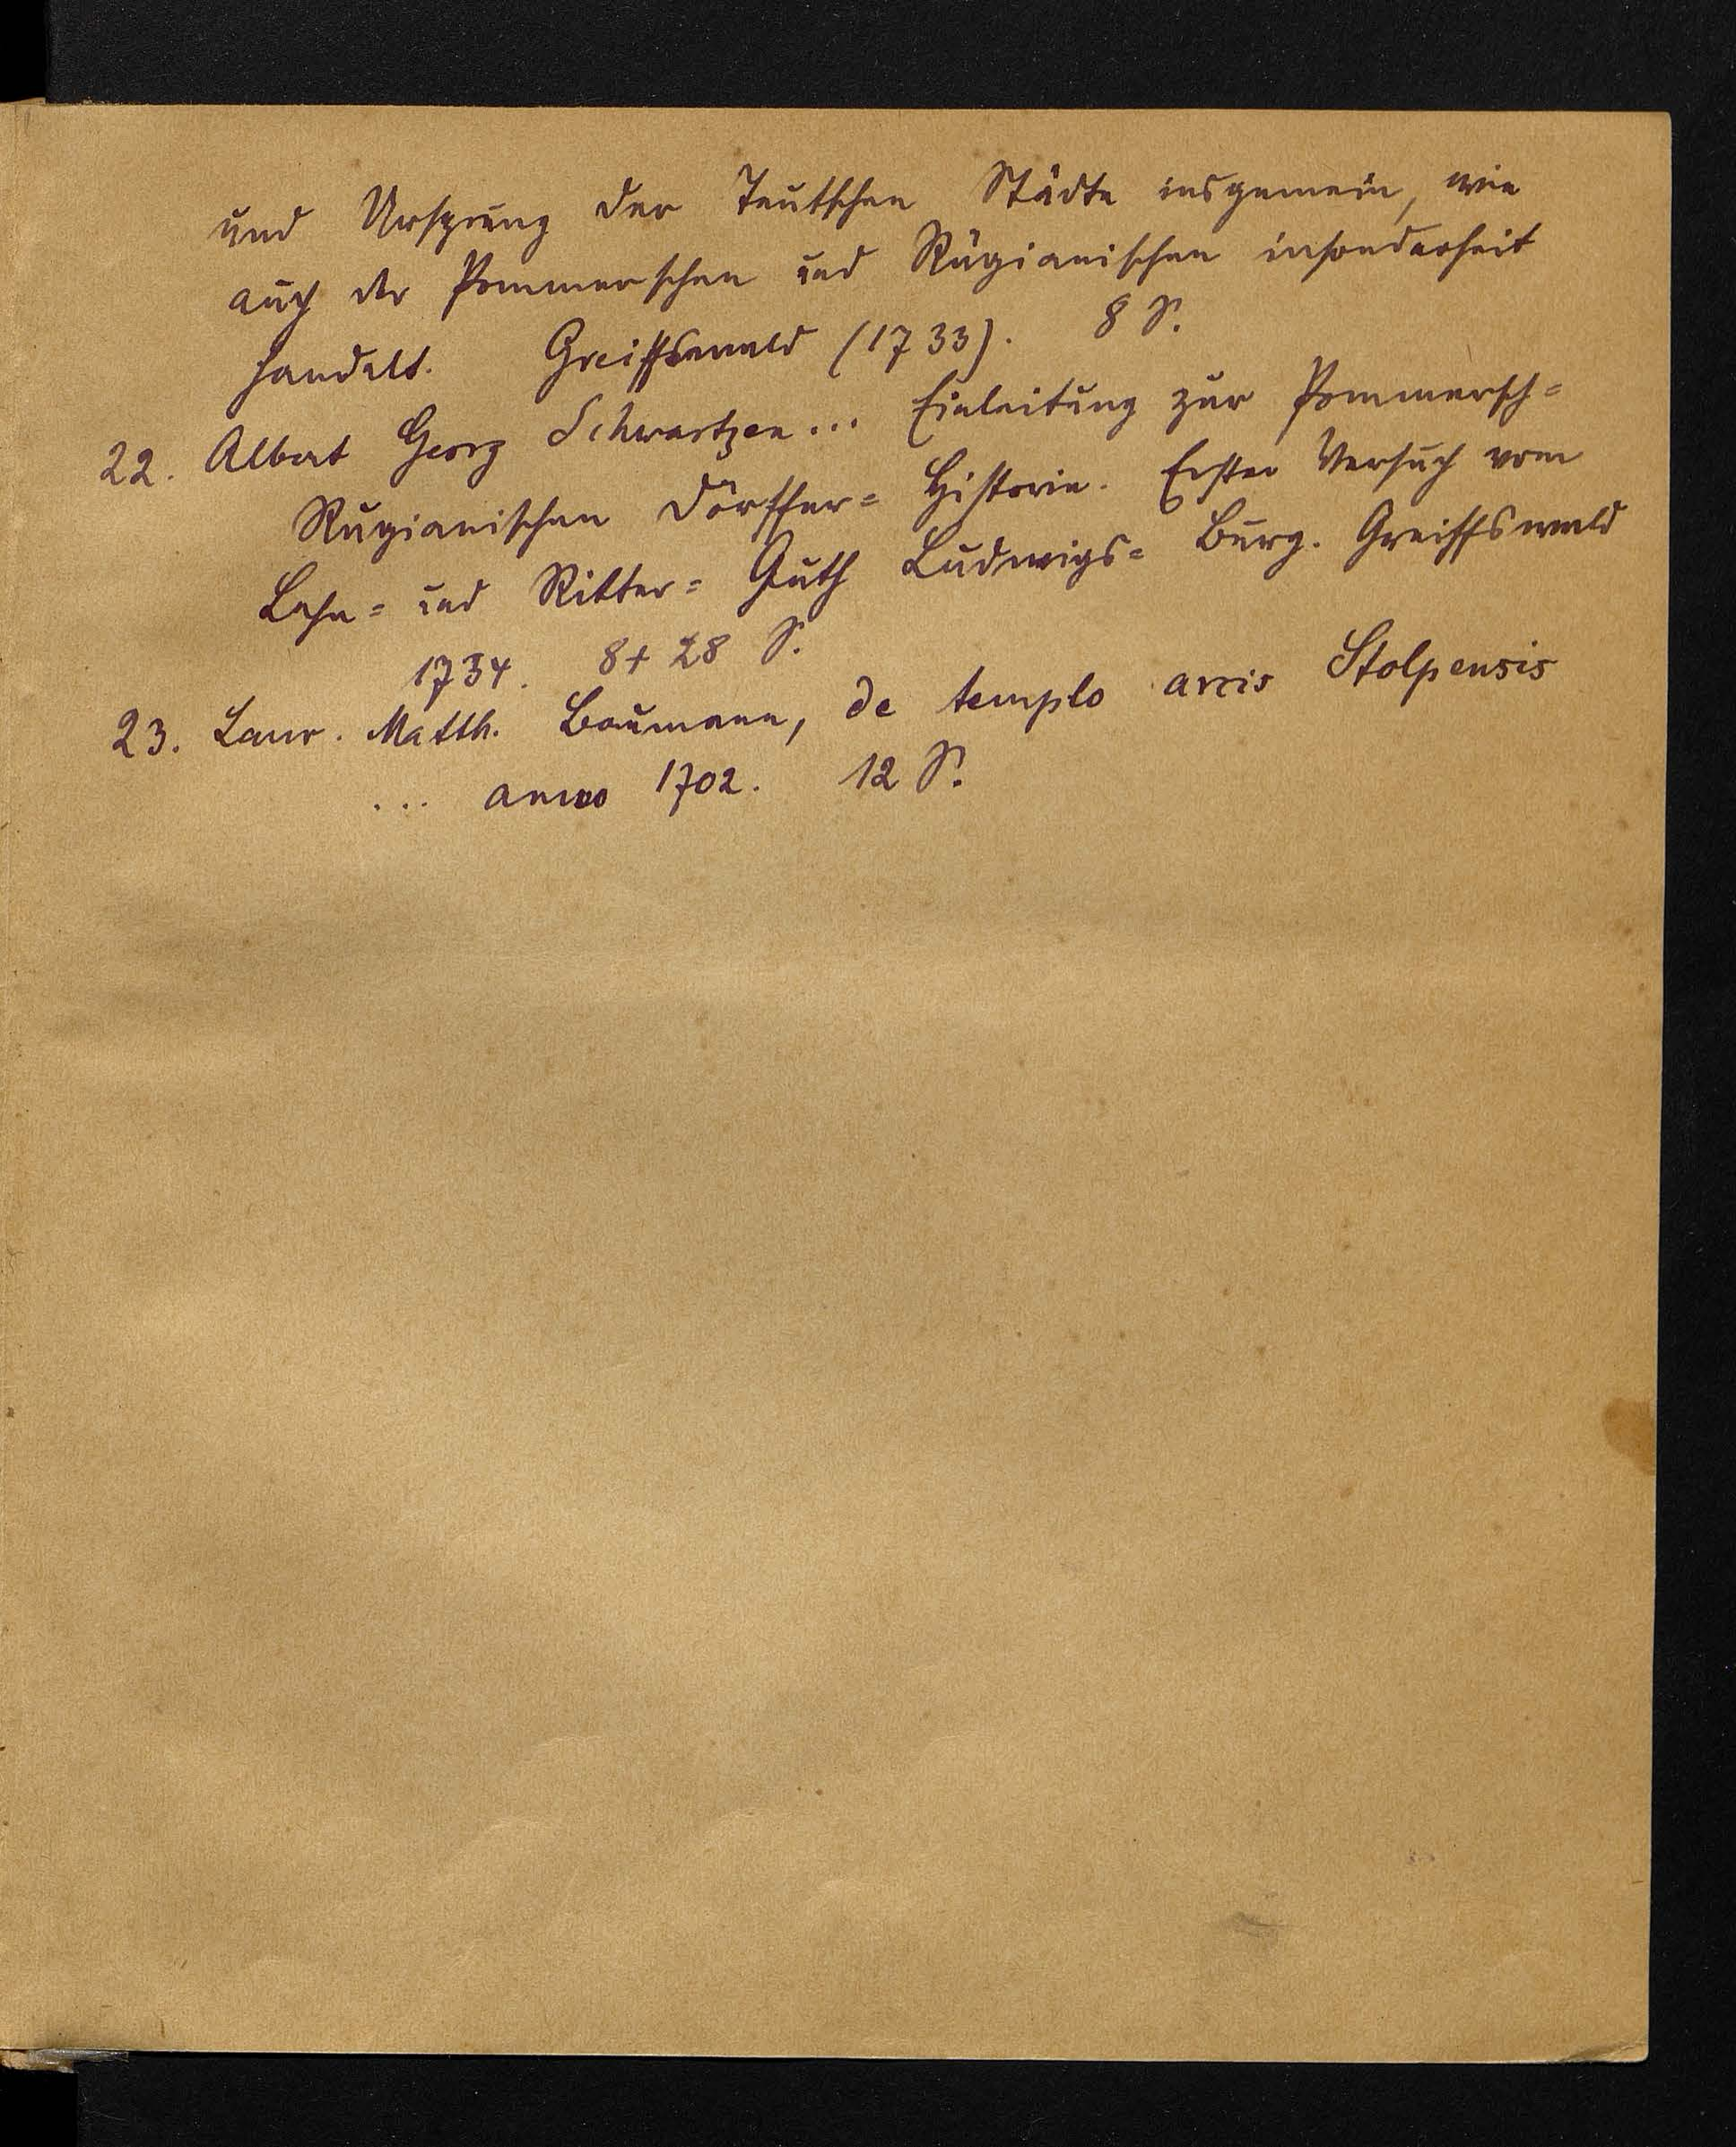 und Ursprung der Teutschen Städte insgemein, wie
auch der Pommerschen und Rügianischen insonderheit
handelt. Greiffswald (1733). 8 S.
22. Albert Georg Schwartzen... Einleitung zur Pommersch=
Rugianischen Dörffer= Historie. Erster Versuch vom
Lehn= und Ritter= Guth Ludwigs= Burg. Greiffswald
1734. 8 + 28 S.
23. Laur. Matth. Baumann, de templo arcis Stolpensis
... anno 1702. 12 S.